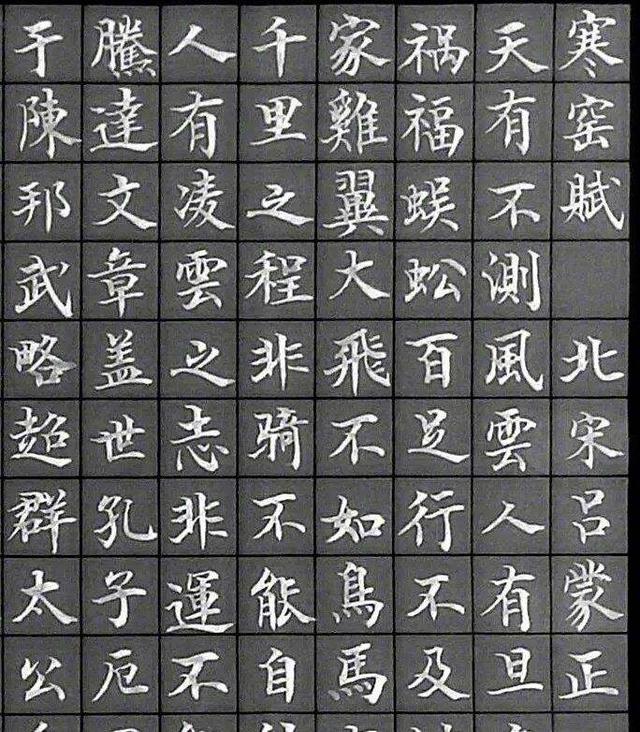 寒窑賦 北宋吕蒙正
天有不測風雲人有旦
祸福蜈蚣百足行不及
家雞翼大飛不如鳥馬
千里之程非骑不能自
人有凌雲之志非運不
騰達文章盖世孔子厄
于陳邦武略超群太公